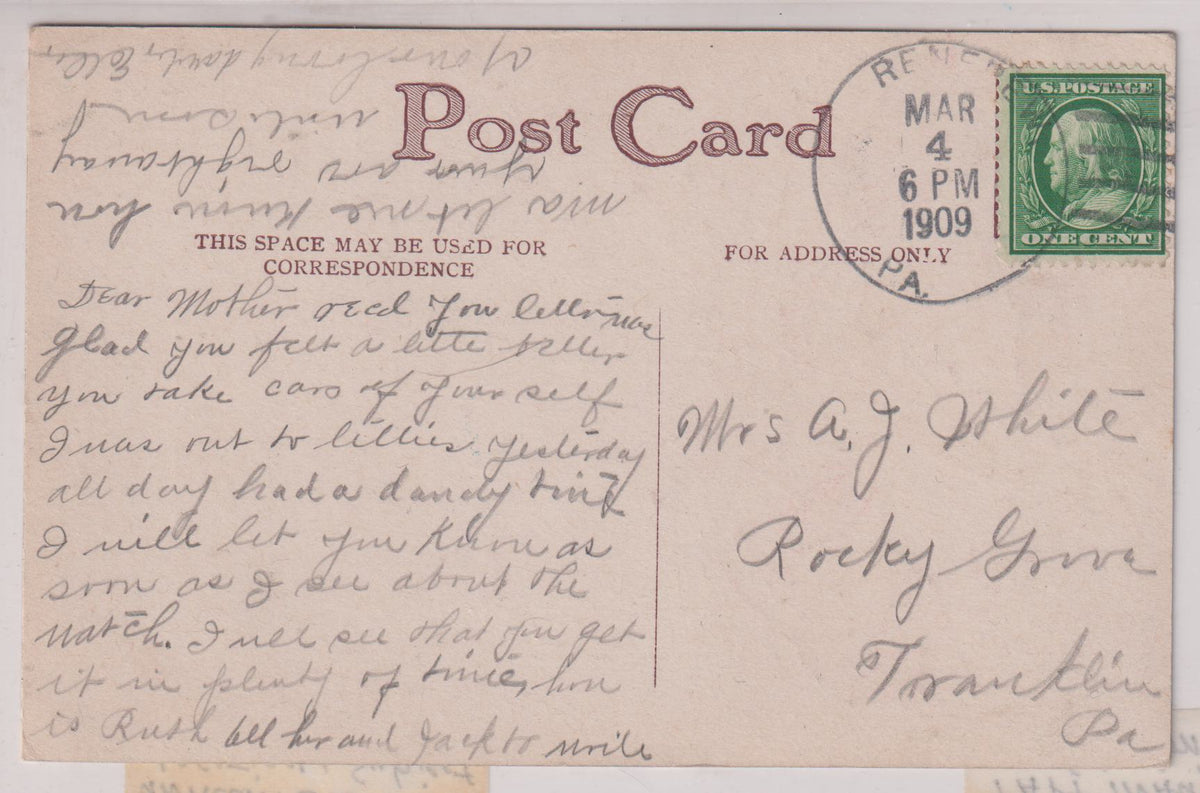 Post Card
THIS SPACE MAY BE USED FOR
CORRESPONDENCE
FOR ADDRESS ONLY
MAR
4
6 PM
1909
PA.
U.S. POSTAGE
ONE CENT
Dear Mother recd you letter was
glad you felt a little better
you take care of your self
I was out to lillies yesterday
all day had a dandy time
I will let you know as
soon as I see about the
watch. I will see that you get
it in plenty of time, how
is Ruth tell her and Jack to write
ma let me know how
your are right away
write soon
your loving daut,
Mrs A. J. White
Rocky Grove
Franklin
Pa